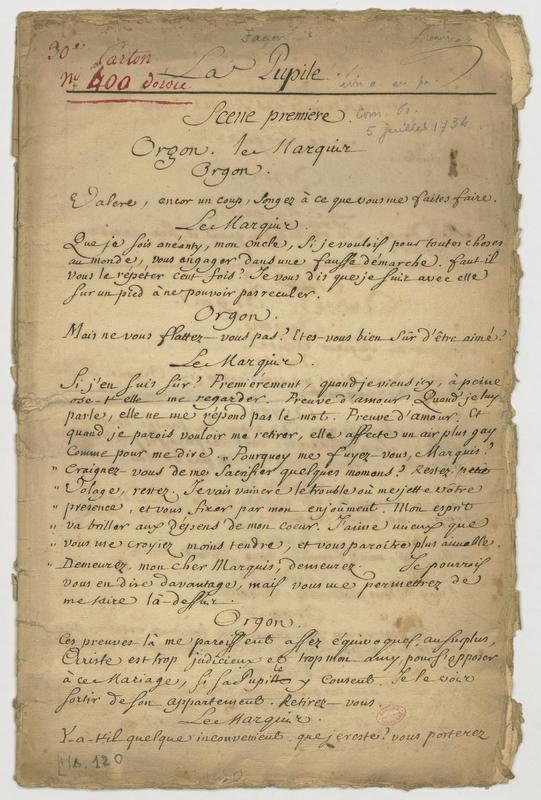 30e. Carton
No 400 dossier
Fagan
La Pupile.
Com. fr.
5 juillet 1734
Scene premiere.
Orgon. le Marquis
Orgon.
Valere, encor un coup, songez à ce que vous me faites faire.
Le Marquis.
Que je sois anéanty, mon oncle, si je voulois pour toutes choses
au monde, vous engager dans une fausse démarche. faut-il
vous le répéter cent fois? Je vous dis que je suis avec elle
sur un pied à ne pouvoir pas reculer.
Orgon.
Mais ne vous flattez-vous pas? Etes-vous bien sûr d'être aimé?
Le Marquis.
Si j'en suis sûr? Premièrement, quand je viens icy, à peine
ose-t-elle me regarder. Preuve d'amour. Quand je luy
parle, elle ne me répond pas le mot. Preuve d'amour. Et
quand je parois vouloir me retirer, elle affecte un air plus gay
Comme pour me dire. „Pourquoy me fuyez-vous, Marquis?
„ Craignez-vous de me Sacrifier quelques momens? Restez, petit
„ Volage, restez. Je vais vaincre le trouble où me jette vôtre
„ présence, et vous fixer par mon enjoument. Mon esprit
„ va briller aux dépens de mon coeur. J'aime mieux que
„ vous me croyiez moins tendre, et vous paroître plus aimable.
„ Demeurez, mon cher Marquis, demeurez. Je pourrois
vous en dire davantage, mais vous me permettrez de
me taire là-dessus.
Orgon.
Ces preuves-là me paroissent assez équivoques. au surplus,
Ariste est trop judicieux et trop mon amy, pour s'opposer
à ce Mariage, si sa Pupille y consent. Je le vois
sortir de son appartement. Retirez-vous.
Le Marquis.
Y-a-t-il quelque inconvenient que je reste? vous porterez
Ms. 120